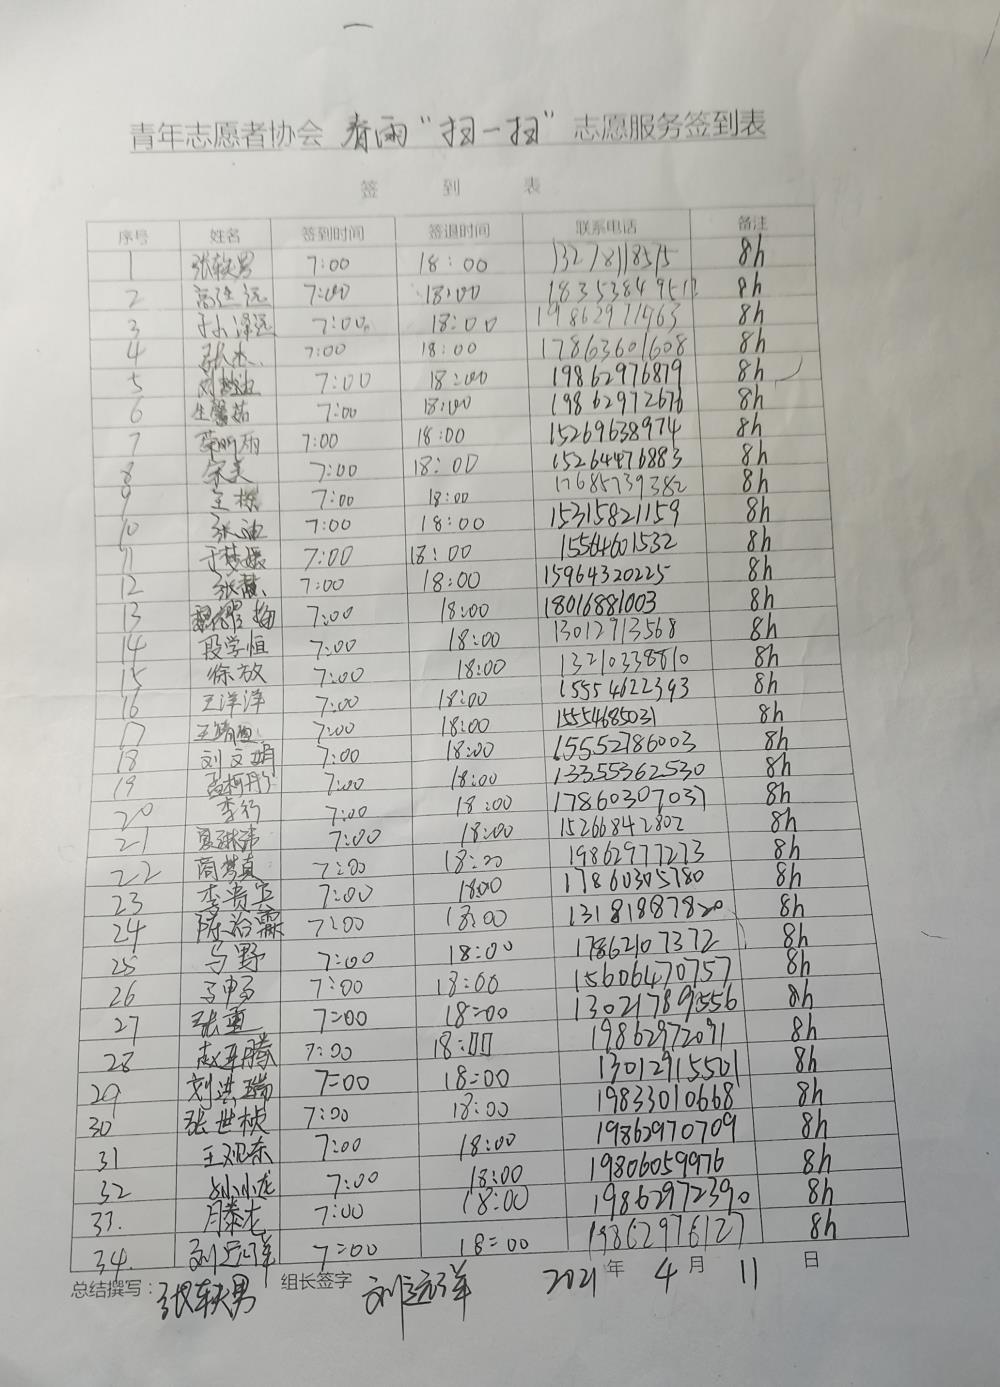 青年志愿者协会 春雨“扫一扫” 志愿服务签到表
签 到 表
序号 姓名 签到时间 签退时间 联系电话 备注
1 张轶男 7:00 18:00 13278118515 8h
2 7:00 18:00 8h
3 孙泽远 7:00 18:00 19862971463 8h
4 张杰 7:00 18:00 17863601608 8h
5 7:00 18:00 19862976879 8h
6 生馨茹 7:00 18:00 19862972676 8h
7 7:00 18:00 15269638974 8h
8 宋美 7:00 18:00 15264476883 8h
9 7:00 18:00 17685739382 8h
10 张迪 7:00 18:00 15315821159 8h
11 于梦媛 7:00 18:00 15564601532 8h
12 张慧 7:00 18:00 15964320225 8h
13 7:00 18:00 18016881003 8h
14 段学恒 7:00 18:00 13012913568 8h
15 徐放 7:00 18:00 13210338810 8h
16 王洋洋 7:00 18:00 15554622393 8h
17 7:00 18:00 1554685031 8h
18 刘文娟 7:00 18:00 15552786003 8h
19 孟柯彤 7:00 18:00 13355362530 8h
20 李行 7:00 18:00 17860307037 8h
21 7:00 18:00 15266842802 8h
22 商梦真 7:00 18:00 19862977273 8h
23 李贵宾 7:00 18:00 17860305780 8h
24 陈治霖 7:00 18:00 13181987820 8h
25 马野 7:00 18:00 17862107372 8h
26 7:00 18:00 15606470757 8h
27 张重 7:00 18:00 13021789556 8h
28 赵延腾 7:00 18:00 19862972091 8h
29 刘洪瑞 7:00 18:00 13012915501 8h
30 张世桢 7:00 18:00 19833010668 8h
31 王观东 7:00 18:00 19862970709 8h
32 孙小龙 7:00 18:00 19806059976 8h
33. 7:00 18:00 19862972390 8h
34. 刘远洋 7:00 18:00 19862976127 8h
总结撰写: 张轶男 组长签字 刘远洋 2021 年 4 月 11 日